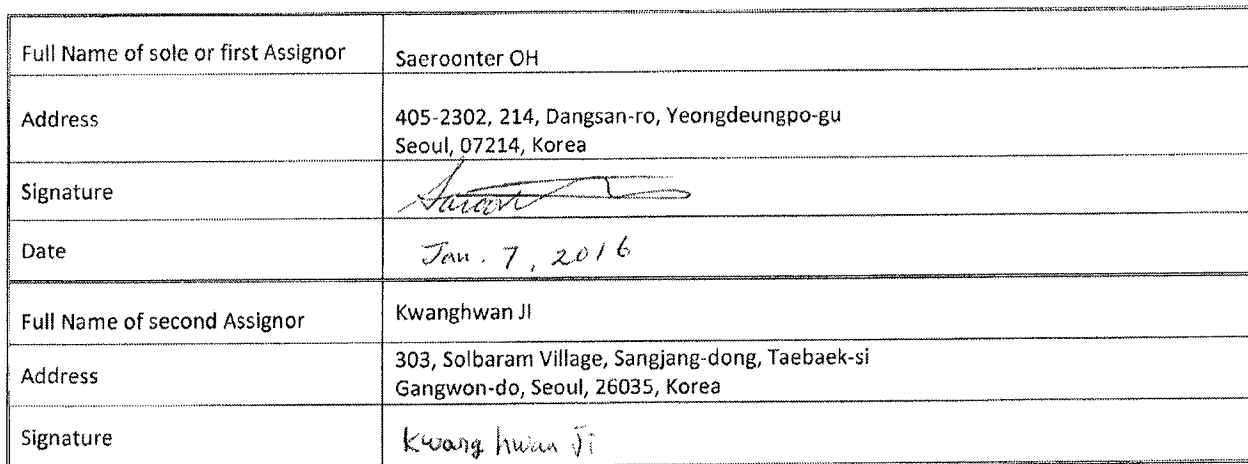 Full Name of sole or first Assignor Saeroonter OH
Address 405-2302, 214, Dangsan-ro, Yeongdeungpo-gu
Seoul, 07214, Korea
Signature
Date Jan. 7, 2016
Full Name of second Assignor Kwanghwan JI
Address 303, Solbaram Village, Sangjang-dong, Taebaek-si
Gangwon-do, Seoul, 26035, Korea
Signature Kwang hwan Ji